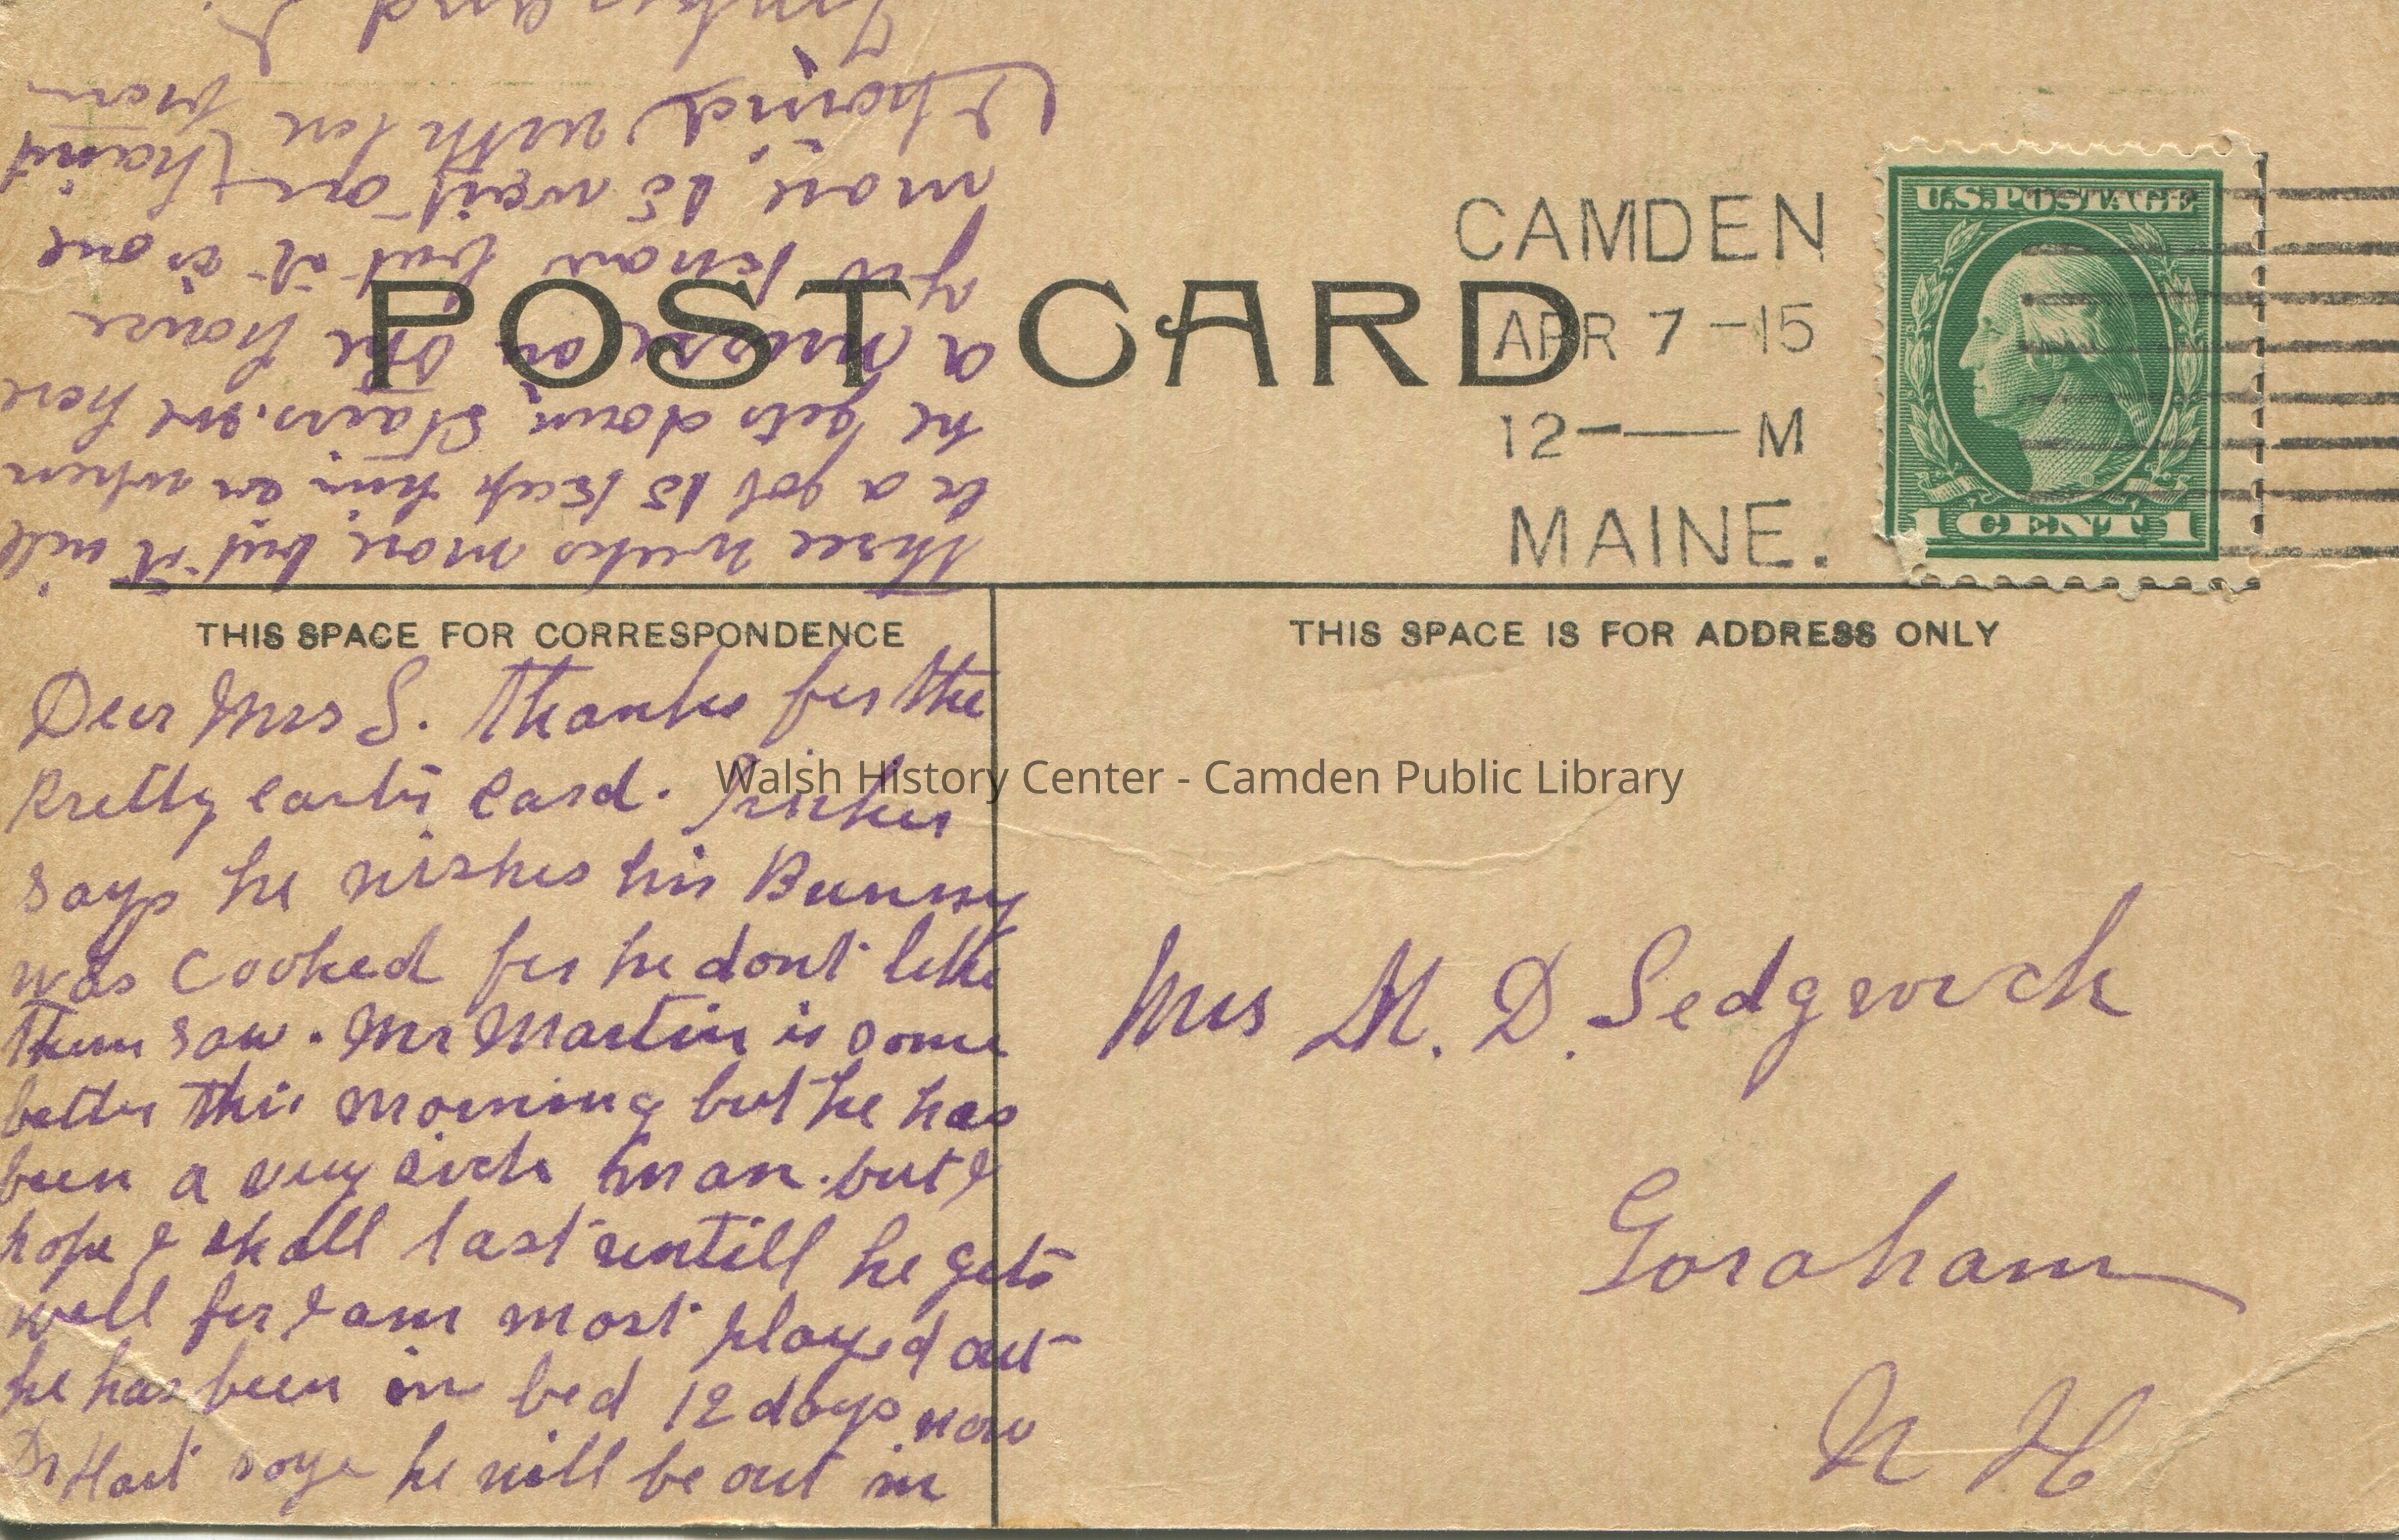 POST CARD
CAMDEN
APR 7 -15
12 — M
MAINE.
U.S. POSTAGE
1 CENT 1
THIS SPACE FOR CORRESPONDENCE
THIS SPACE IS FOR ADDRESS ONLY
Dear Mrs S. Thanks for the
Pretty card.
says he wishes his Bunny
was cooked for he dont like
them raw. Mr Martin is some
better this morning but he has
been a very sick man. but I
hope I shall last untill he gets
well for I am most played out
he has been in bed 12 days now
Dr Hart says he will be out in
three weeks more, but it will
be a got to keep him on when
he gets down stairs. we have
a nurse on the house
yu know but it is one
more to wait on
Walsh History Center - Camden Public Library
Mrs M. D. Sedgwick
Goraham
N H